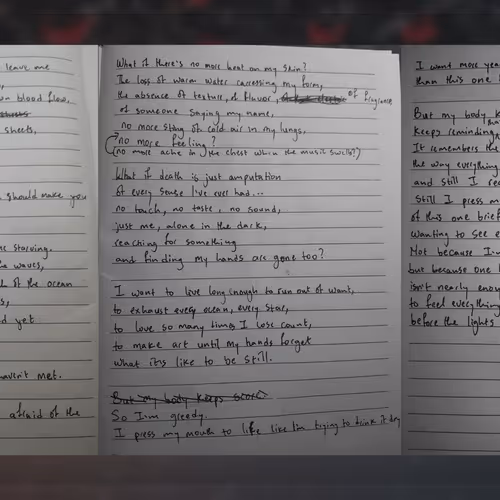 leave me
blood flow,
sheets,
should make you
starving.
the waves,
of the ocean
yet
haven't met.
afraid of the
What if there's no more heat on my skin?
The loss of warm water caressing my form,
the absence of texture, of flavor, of fragrance
of someone saying my name,
no more sting of cold air in my lungs,
no more feeling?
(no more ache in the chest when the music swells?)
What if death is just amputation
Of every sense I've ever had...
no touch, no taste, no sound,
just me, alone in the dark,
reaching for something
and finding my hands are gone too?
I want to live long enough to run out of want,
to exhaust every ocean, every star,
to love so many times I lose count,
to make art until my hands forget
what it's like to be still.
But my body keeps score
So I'm greedy.
I press my mouth to life like I'm trying to drink it dry
I want more yea
than this one
But my body k
keeps reminding
It remembers the
the way everything
and still I
Still I press m
of this one brief
Wanting to see e
Not because I'm
but because one
isn't nearly enou
to feel everything
before the lights